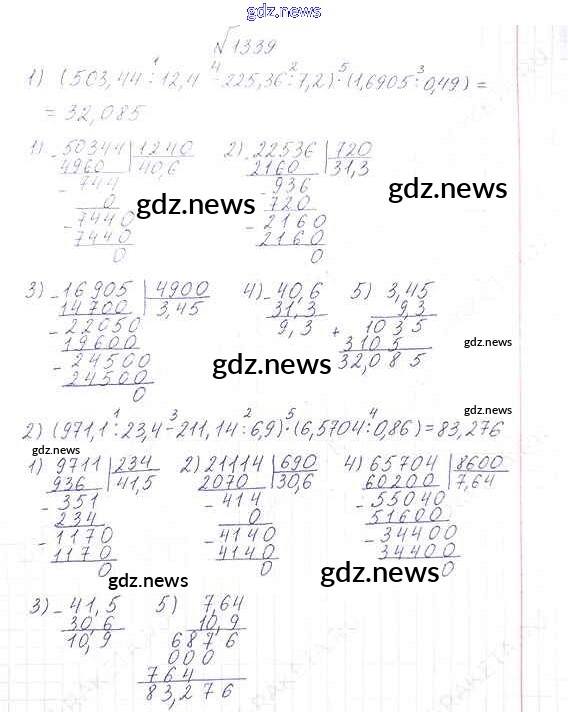 gdz.news
√1339
1) (503,44 : 12,4 - 225,36 : 7,2) · (1,6905 : 0,49) =
= 32,085
1) - 50344 | 1240
4960 40,6
- 744
0
- 7440
7440
0
2) - 22536 | 720
2160 31,3
- 936
720
- 2160
2160
0
gdz.news
gdz.news
3) - 16905 | 4900
14700 3,45
- 22050
19600
- 24500
24500
0
4) - 40,6
31,3
9,3
5) 3,45
9,3
+ 1035
3105
32,085
gdz.news
gdz.news
gdz.news
2) (971,1 : 23,4 - 211,14 : 6,9) · (6,5704 : 0,86) = 83,276
gdz.news
1) 9711 | 234
936 41,5
- 351
234
- 1170
1170
0
2) 21114 | 690
2070 30,6
- 414
0
- 4140
4140
0
4) 65704 | 8600
60200 7,64
- 55040
51600
- 34400
34400
0
gdz.news
gdz.news
3) - 41,5
30,6
10,9
5) 7,64
10,9
6876
000
764
83,276